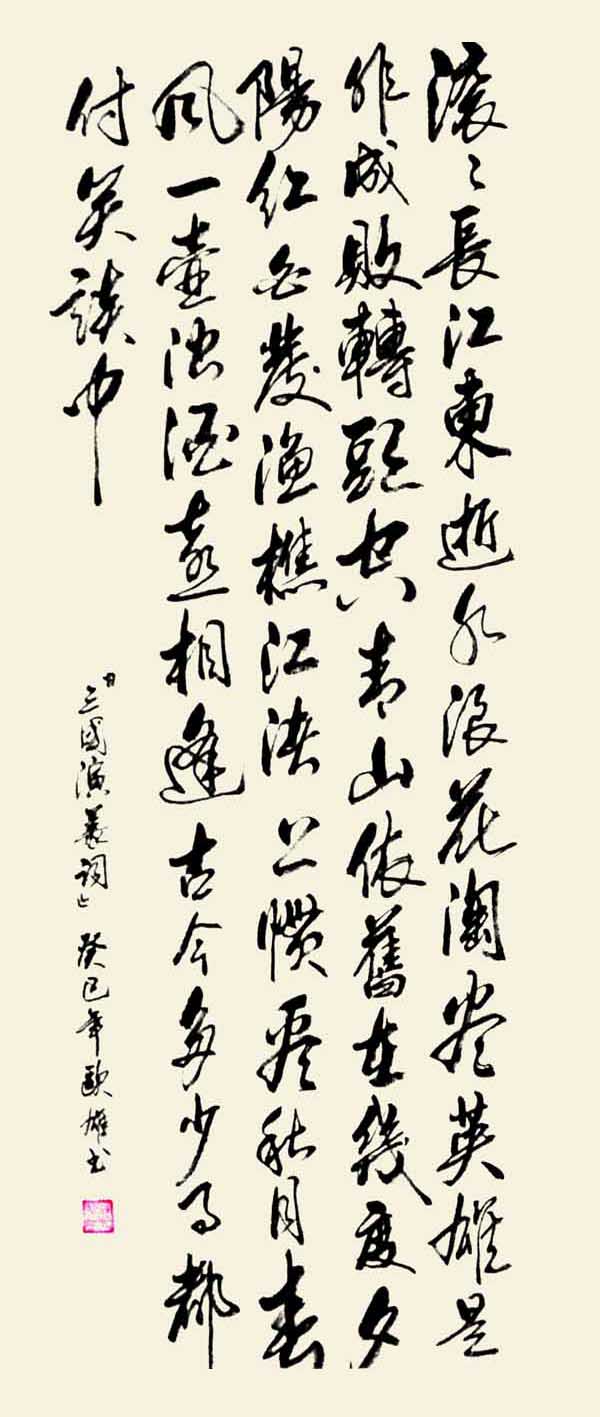 滚〻長江東逝水浪花淘尽英雄是
非成敗轉頭空青山依舊在幾度夕
陽红白发渔樵江渚上慣看秋月春
风一壶浊酒喜相逢古今多少事都
付笑談中
「三國演義詞」癸巳年歐雄书